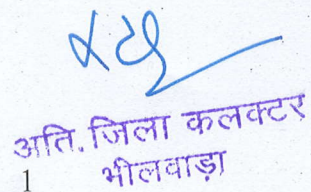 अति. जिला कलक्टर
भीलवाड़ा
1